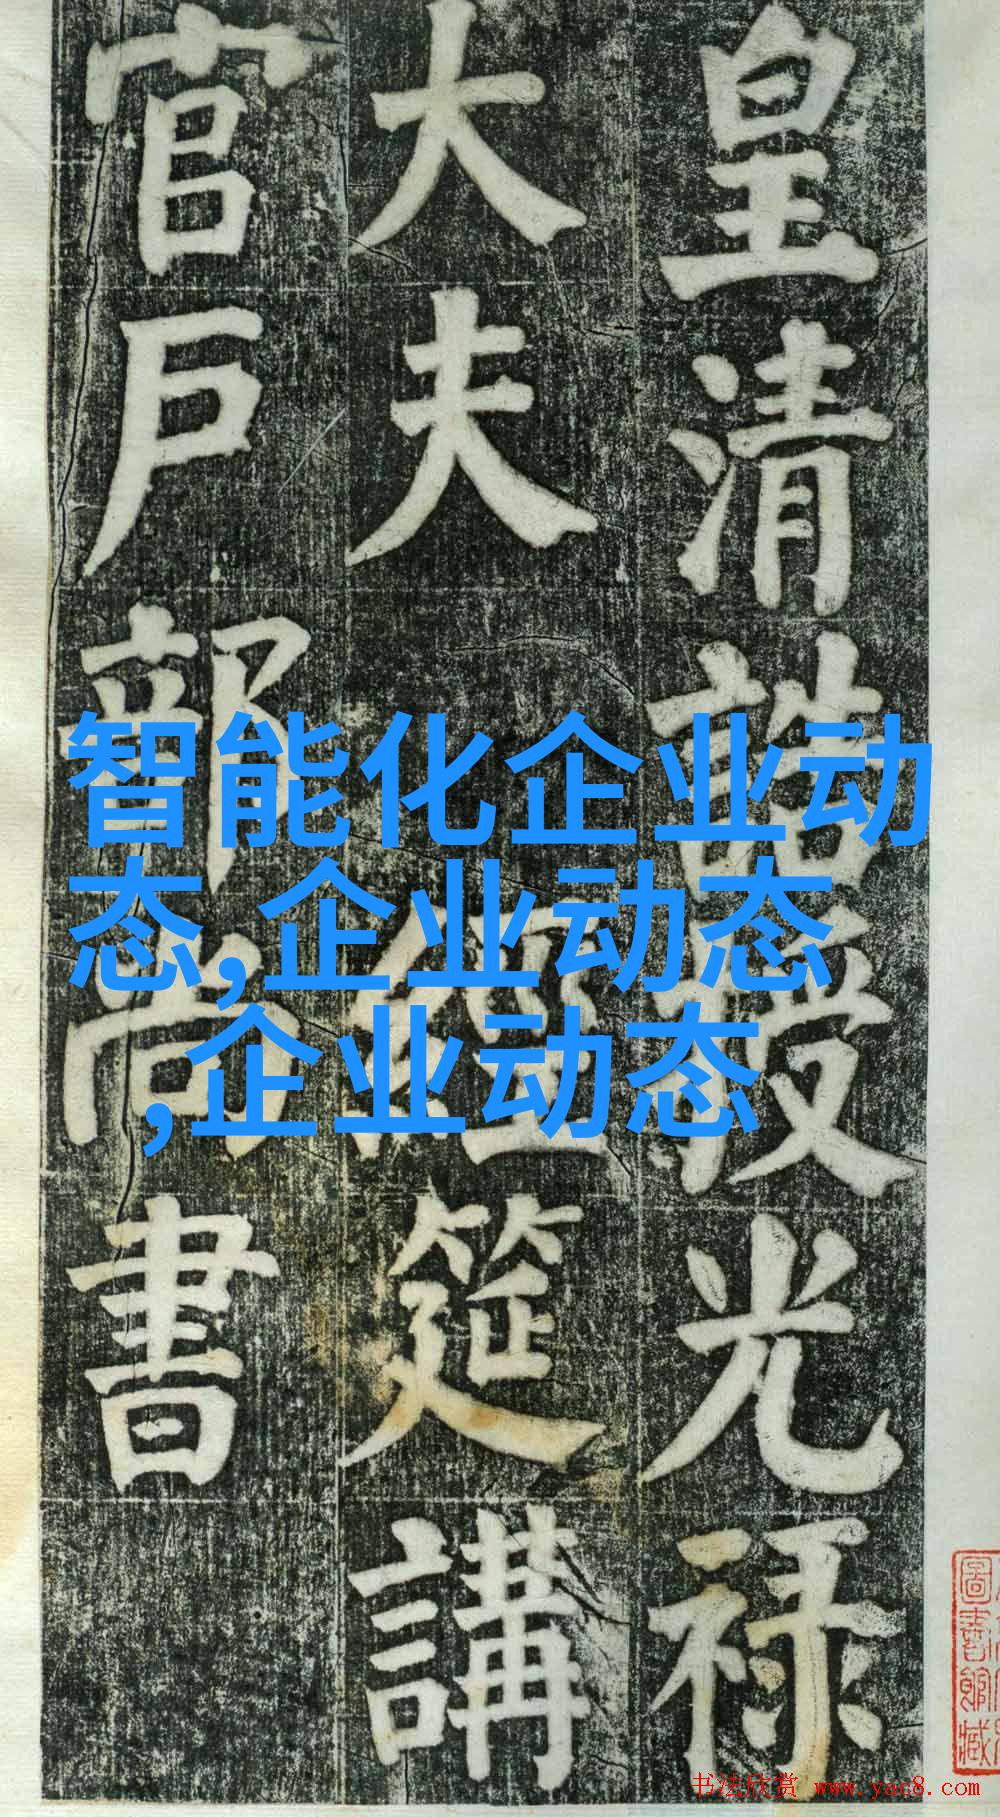 皇清誥授光禄
大夫 經筵講
官戶部尚書
智能化企业动
态,企业动态
,企业动态
圖書館藏
书法欣赏 www.yac8.com